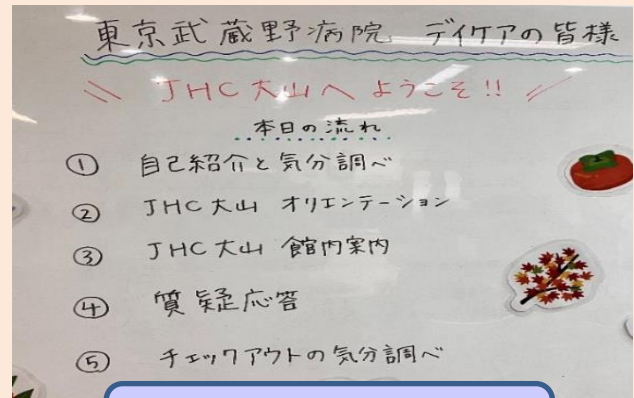 東京武蔵野病院 デイケアの皆様
\\ JHC大山へようこそ!! //
本日の流れ
① 自己紹介と気分調べ
② JHC大山 オリエンテーション
③ JHC大山 館内案内
④ 質疑応答
⑤ チェックアウトの気分調べ